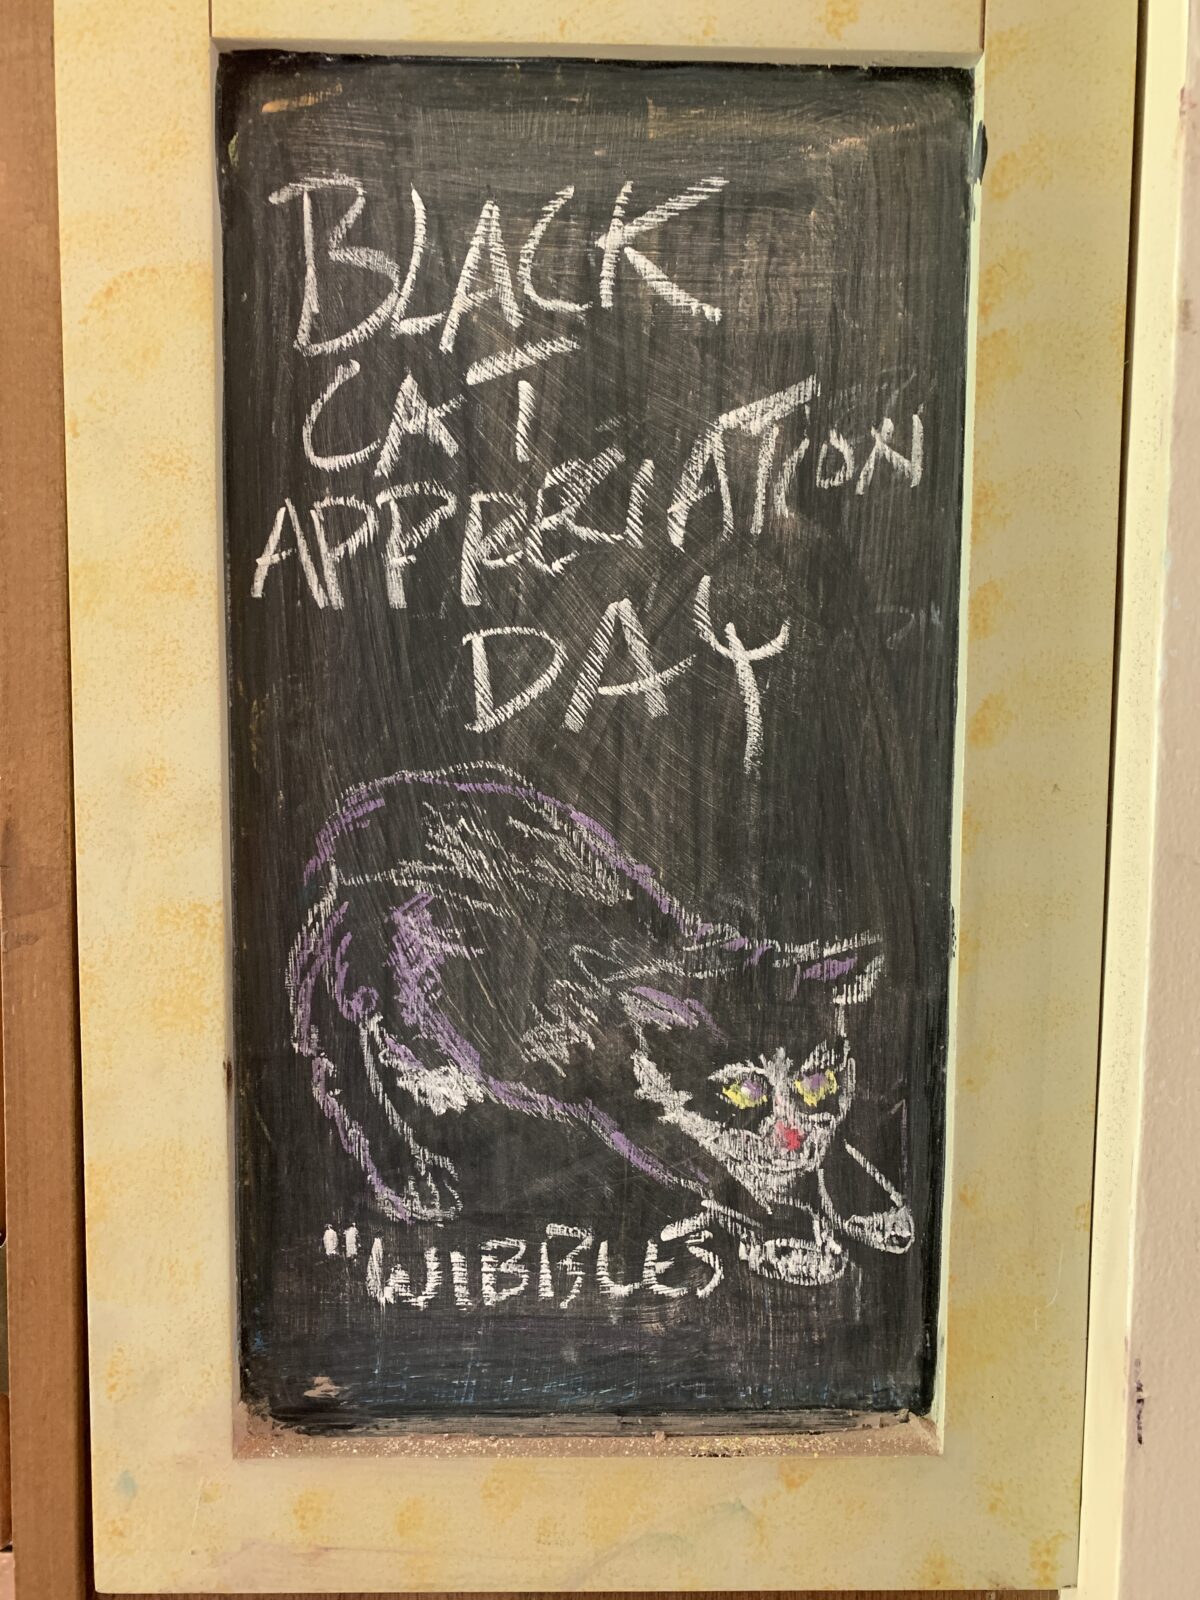 BLACK
CAT
APPRECIATION
DAY
"WIBBLES"